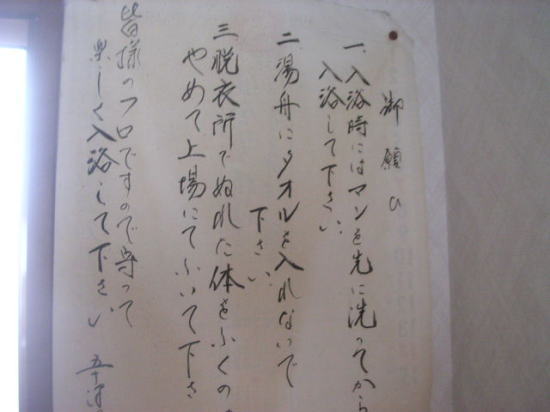 御願ひ
一、入浴時にはマンを先に洗ってから
入浴して下さい
二、湯舟にタオルを入れないで
下さい
三 脱衣所でぬれた体をふくの
やめて上場にてふいて下さ
皆様のフロですので守って
楽しく入浴して下さい